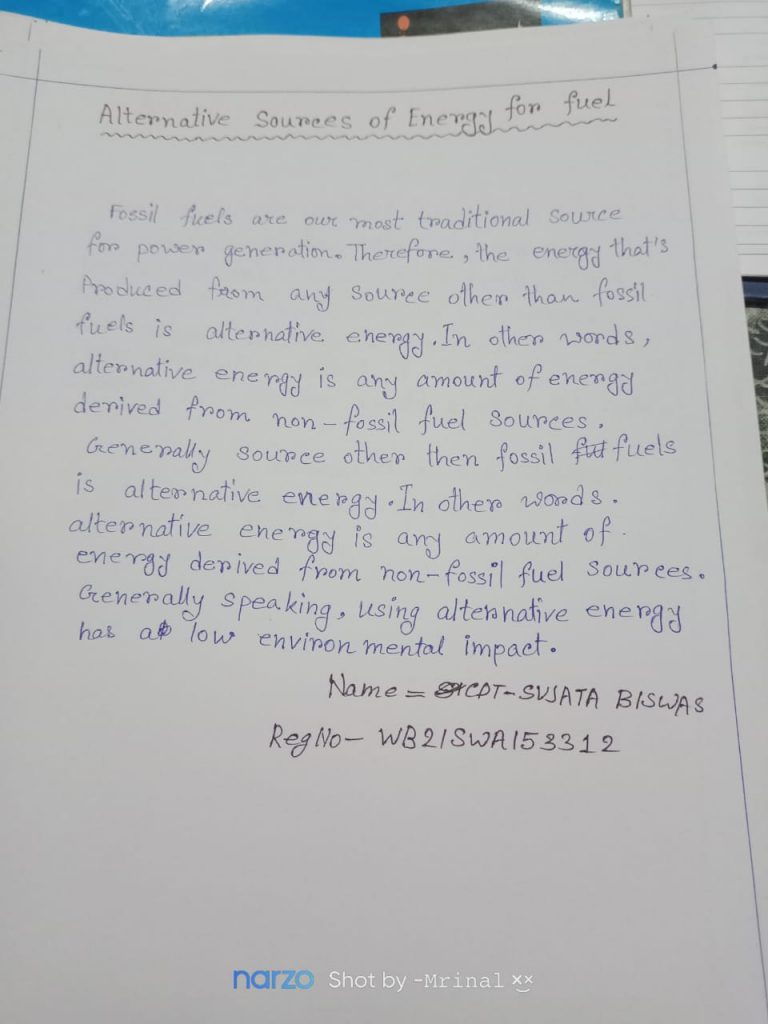 Alternative Sources of Energy for fuel
Fossil fuels are our most traditional source
for power generation. Therefore, the energy that's
Produced from any source other than fossil
fuels is alternative energy. In other words,
alternative energy is any amount of energy
derived from non-fossil fuel sources.
Generally source other then fossil fuels
is alternative energy. In other words.
alternative energy is any amount of
energy derived from non-fossil fuel sources.
Generally speaking, using alternative energy
has a low environmental impact.
Name = CDT-SUJATA BISWAS
Reg No- WB21SWA153312
narzo Shot by -Mrinal